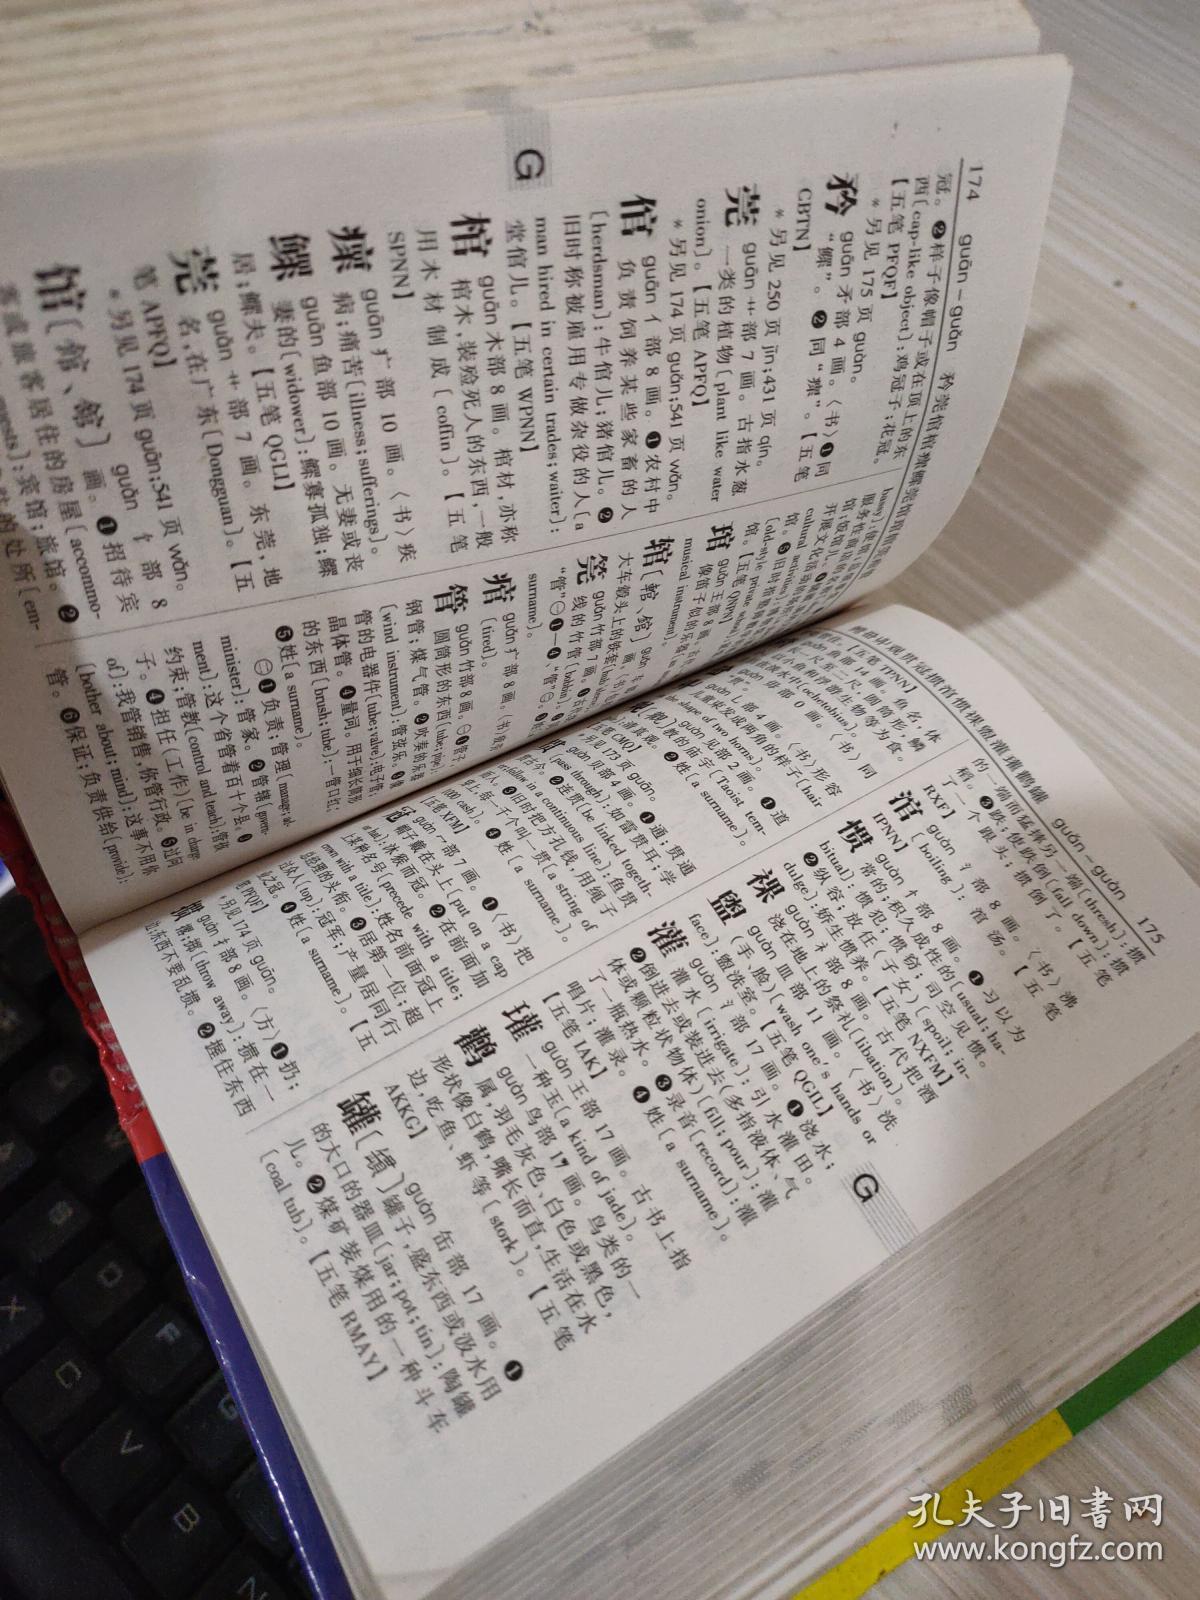 174 guān-guǎn 矜莞倌棺瘝鳏莞馆琯
冠。❷样子像帽子或在顶上的东
西〔cap-like object〕:鸡冠子;花冠。
【五笔 PFQF】
*另见 175 页 guàn。
矜 guān 矛部 4 画。〈书〉❶同
“鳏”。❷同“瘝”。【五笔
CBTN】
*另见 250 页 jīn;431 页 qín。
莞 guān 艹部 7 画。古指水葱
一类的植物〔plant like water
onion〕。【五笔 APFQ】
*另见 174 页 guǎn;541 页 wǎn。
倌 guān 亻部 8 画。❶农村中
负责饲养某些家畜的人
〔herdsman〕:牛倌儿;猪倌儿。❷
旧时称被雇用专做杂役的人〔a
man hired in certain trades;waiter〕:
堂倌儿。【五笔 WPNN】
棺 guān 木部 8 画。棺材,亦称
棺木,装殓死人的东西,一般
用木材制成〔coffin〕。【五笔
SPNN】
瘝 guān 疒部 10 画。〈书〉疾
病;痛苦〔illness;sufferings〕。
鳏 guān 鱼部 10 画。无妻或丧
妻的〔widower〕:鳏寡孤独;鳏
居;鳏夫。【五笔 QGLI】
莞 guǎn 艹部 7 画。东莞,地
名,在广东〔Dongguan〕。【五
笔 APFQ】
*另见 174 页 guān;541 页 wǎn。
馆〔館、舘〕 guǎn 饣部 8
画。❶招待宾
客或旅客居住的房屋〔accommo-
guests〕:宾馆;旅馆。❷
的处所〔em-
bassy〕:使馆
cultural activities〕
馆。❺旧时
〔old-style private school〕
馆。【五笔 QNPN】
琯 guǎn 王部 8 画。
像笛子似的乐器
musical instrument〕。
辖〔錧、舘〕 guǎn
大车毂头上的铁套
筦 guǎn 竹部 7 画。
线的竹管〔bobbin〕。
“管”㊀❶—❹、“管”㊁。
surname〕。
痯 guǎn 疒部 8 画。〈书〉疲劳
〔tired〕。
管 guǎn 竹部 8 画。㊀❶管子,
圆筒形的东西〔tube;pipe〕:
钢管;煤气管。❷吹奏的乐器
〔wind instrument〕:管弦乐。❸像
管的电器件〔tube;valve〕:电子管;
晶体管。❹量词。用于细长筒形
的东西〔brush;tube〕:一管口红;
❺姓〔a surname〕。
㊁❶负责;管理〔manage;ad-
minister〕:管家。❷管辖〔govern-
ment〕:这个省管着百十个县。❸
约束;管教〔control and teach〕:管孩
子。❹担任(工作)〔be in charge
of〕:我管销售,你管行政。❺过问
〔bother about;mind〕:这事不用你
管。❻保证;负责供给〔provide〕:
鳤毌丱观贯冠掼涫惯祼盥灌瓘鹳罐 guǎn-guàn 175
【五笔 TPNN】
guǎn 鱼部 14 画。鱼名,体
长一尺至二尺,圆筒形,鳞
小鱼和浮游生物等为食。
淡水中〔ochetobius〕。
guàn 毋部 0 画。〈书〉同
guàn 丨部 4 画。〈书〉形容
儿童束发成两角的样子〔hair
shape of two horns〕。
〔觀〕 guàn 见部 2 画。❶道
教的庙宇〔Taoist tem-
❷姓〔a surname〕。
【五笔 CMQ】
*另见 173 页 guān。
贯 guàn 贝部 4 画。❶通;贯通
〔pass through〕:如雷贯耳;学
❷连贯〔be linked togeth-
er;follow in a continuous line〕:鱼贯
而入。❸旧时把方孔钱,用绳子
穿上,每一千个叫一贯〔a string of
100 cash〕。❹姓〔a surname〕。
【五笔 XFM】
冠 guàn 冖部 7 画。❶〈书〉把
帽子戴在头上〔put on a cap
:沐猴而冠。❷在前面加
上某种名号〔precede with a title;
crown with a title〕:姓名前面冠上
的头衔。❸居第一位;超
众人〔top〕:冠军;产量居同行
业之冠。❹姓〔a surname〕。【五
笔 PFQF】
*另见 174 页 guān。
掼 guàn 扌部 8 画。〈方〉❶扔;
摔;掷〔throw away〕:掼在一
边;东西不要乱掼。❷握住东西
的一端而猛摔另一端〔thresh〕:掼
稻。❸跌;使跌倒〔fall down〕:掼
了一个跟头;掼倒了。【五笔
RXF】
涫 guàn 氵部 8 画。〈书〉沸
〔boiling〕:涫汤。【五笔
IPNN】
惯 guàn 忄部 8 画。❶习以为
常的;积久成性的〔usual;ha-
bitual〕:惯犯;惯窃;司空见惯。
❷纵容;放任(子女)〔spoil;in-
dulge〕:娇生惯养。【五笔 NXFM】
祼 guàn 礻部 8 画。古代把酒
浇在地上的祭礼〔libation〕。
盥 guàn 皿部 11 画。〈书〉洗
(手、脸)〔wash one's hands or
face〕:盥洗室。【五笔 QGIL】
灌 guàn 氵部 17 画。❶浇水;
灌水〔irrigate〕:引水灌田。
❷倒进去或装进去(多指液体、气
体或颗粒状物体)〔fill;pour〕:灌
了一瓶热水。❸录音〔record〕:灌
唱片;灌录。❹姓〔a surname〕。
【五笔 IAK】
瓘 guàn 王部 17 画。古书上指
一种玉〔a kind of jade〕。
鹳 guàn 鸟部 17 画。鸟类的一
属,羽毛灰色、白色或黑色,
形状像白鹤,嘴长而直,生活在水
边,吃鱼、虾等〔stork〕。【五笔
AKKG】
罐〔鑵〕 guàn 缶部 17 画。❶
罐子,盛东西或汲水用
的大口的器皿〔jar;pot;tin〕:陶罐
儿。❷煤矿装煤用的一种斗车
〔coal tub〕。【五笔 RMAY】
G
G
孔夫子旧书网
www.kongfz.com